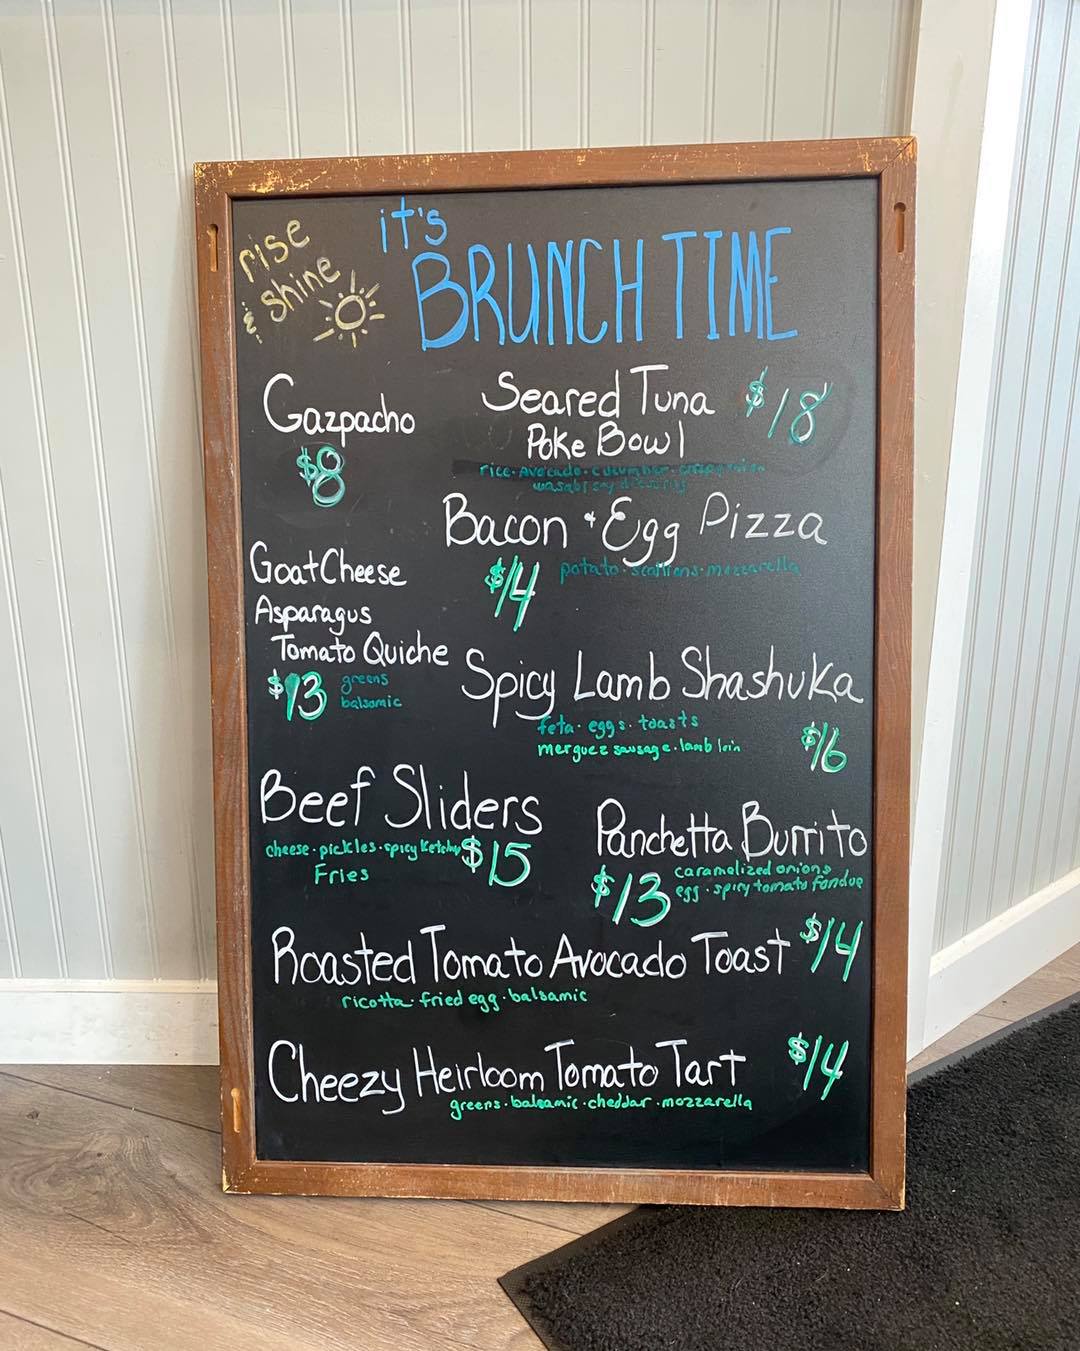 rise
& shine
it's
BRUNCH TIME
Gazpacho
$8
Seared Tuna $18
Poke Bowl
rice · avocado · cucumber · crispy onion
wasabi soy dressing
Bacon & Egg Pizza
$14 potato · scallions · mozzarella
Goat Cheese
Asparagus
Tomato Quiche
$13 greens
balsamic
Spicy Lamb Shashuka
feta · eggs · toasts
merguez sausage · lamb loin
$16
Beef Sliders
cheese · pickles · spicy Ketchup $15
Fries
Panchetta Burrito
$13 caramelized onions
egg · spicy tomato fondue
Roasted Tomato Avocado Toast $14
ricotta · fried egg · balsamic
Cheezy Heirloom Tomato Tart $14
greens · balsamic · cheddar · mozzarella